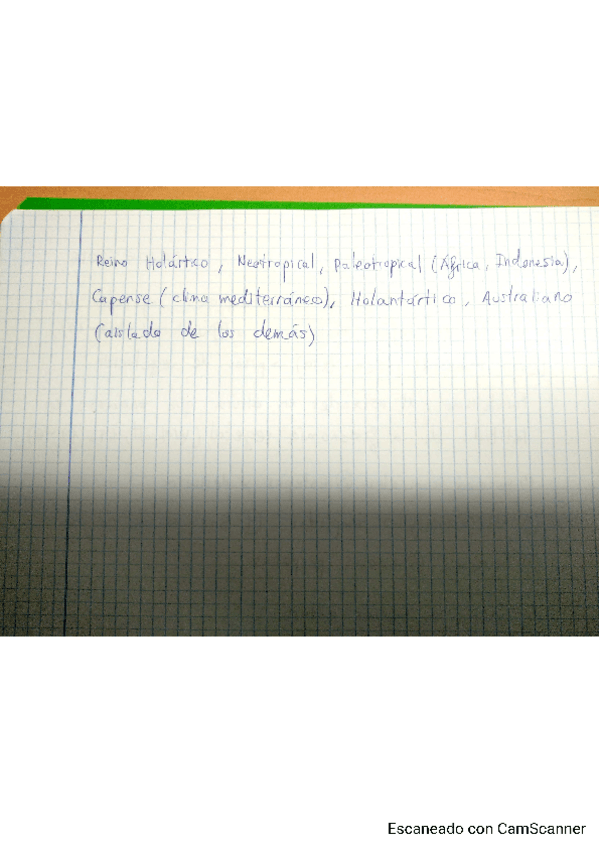 Reino Holártico, Neotropical, Paleotropical (África, Indonesia),
Capense (clima mediterráneo), Holantártico, Australiano
(aislado de los demás)
Escaneado con CamScanner